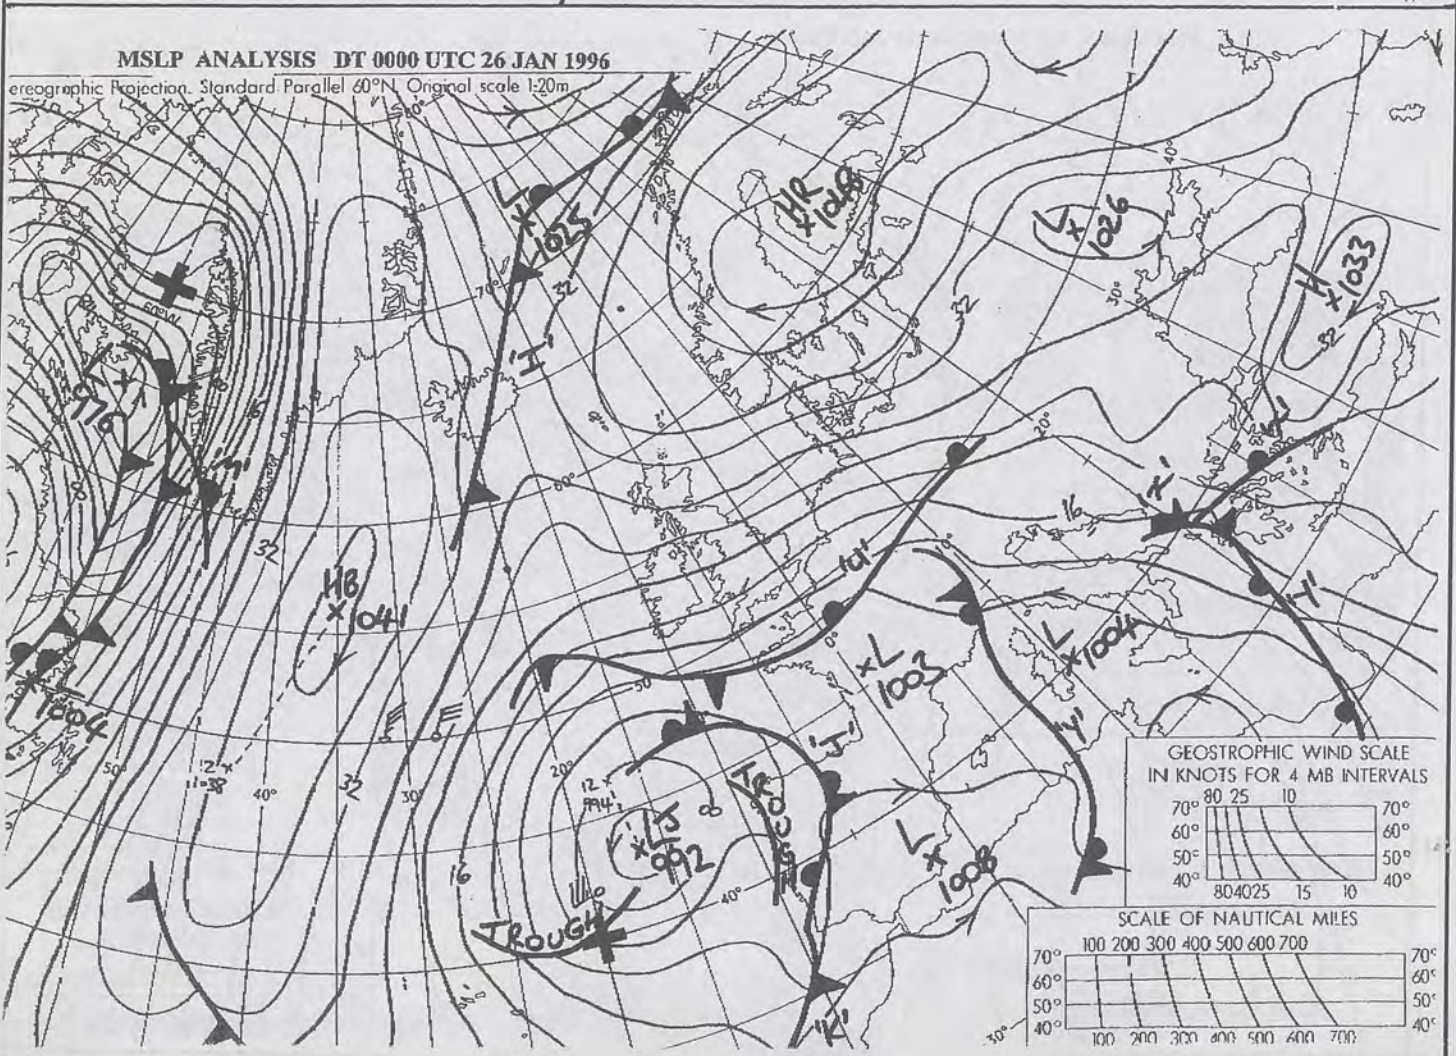 MSLP ANALYSIS DT 0000 UTC 26 JAN 1996
ereographic Projection. Standard Parallel 60°N. Original scale 1:20m
80°
L
1025
HR
1048
40°
L
1026
H
1033
32
70°
32
32
30°
60°W
L
976
'I'
20°
60°
16
'X'
'U'
10°
'H'
32
HB
1041
L
1004
0°
L
1003
L
1004
50°
'Y'
L
1004
'J'
TROUGH
50°
40°
32
30°
20°
12
994
LJ
992
16
40°
L
1008
TROUGH
'K'
30°
GEOSTROPHIC WIND SCALE
IN KNOTS FOR 4 MB INTERVALS
80 25 10
70° 70°
60° 60°
50° 50°
40° 40°
80 40 25 15 10
SCALE OF NAUTICAL MILES
100 200 300 400 500 600 700
70° 70°
60° 60°
50° 50°
40° 40°
100 200 300 400 500 600 700